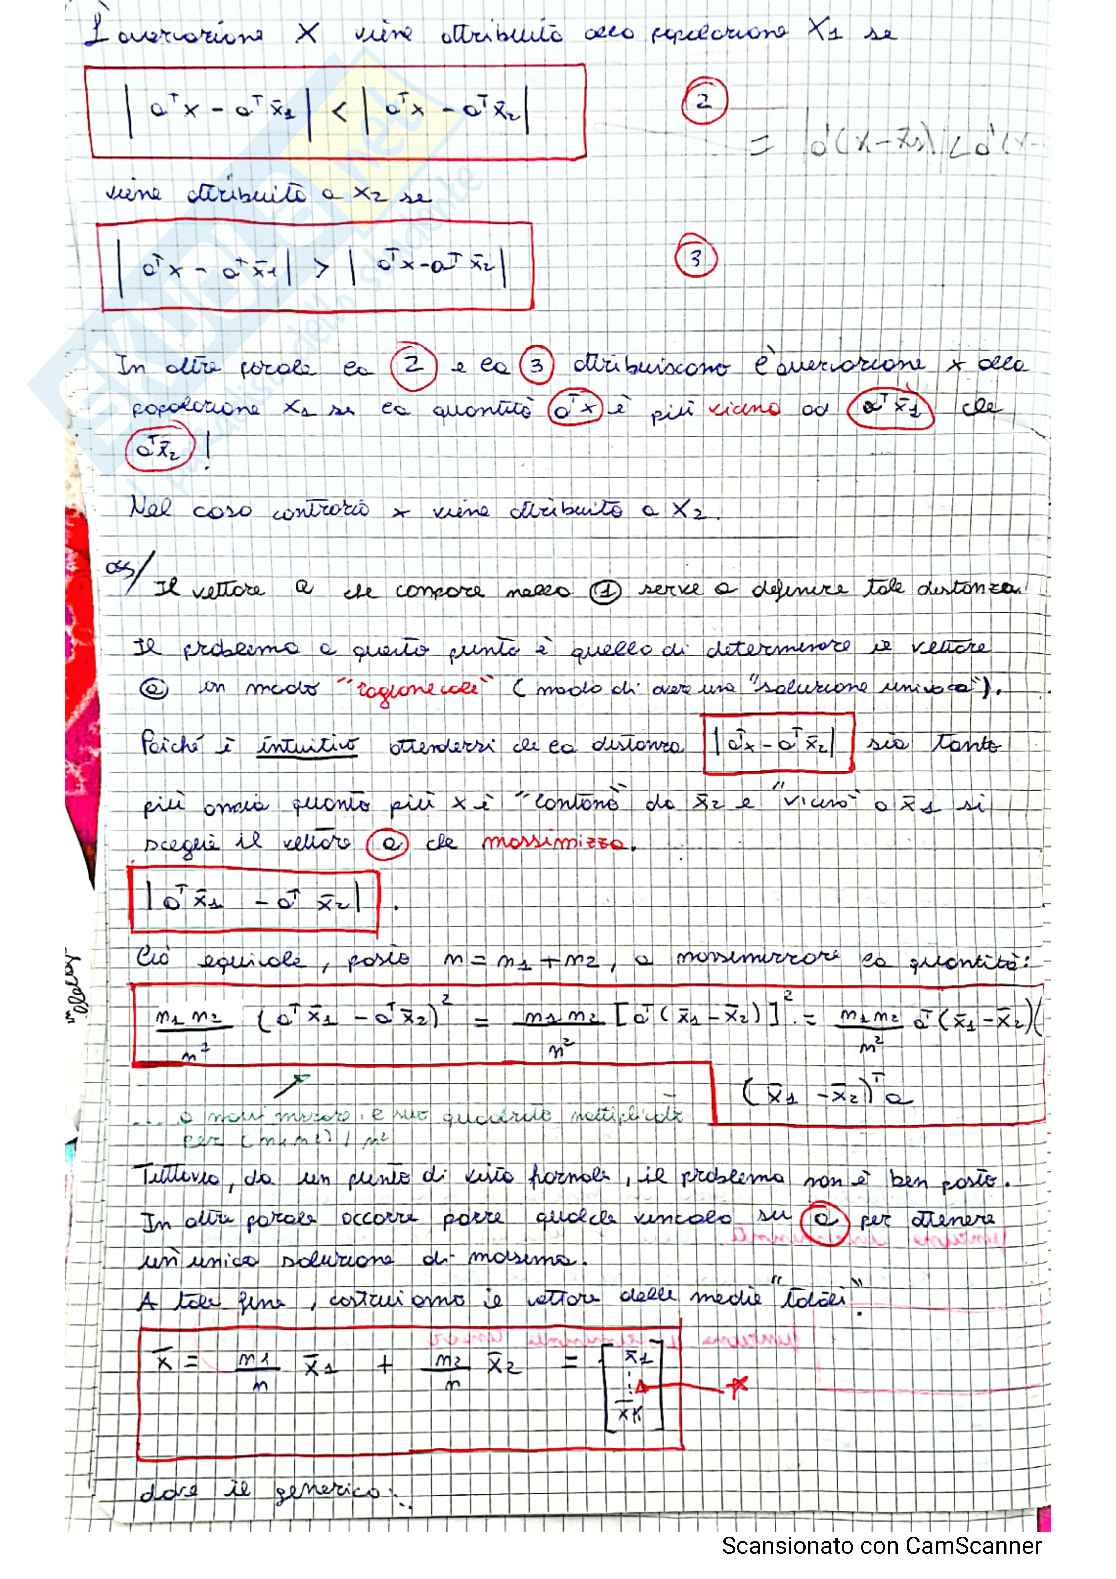 L'osservazione X viene attribuita alla popolazione X1 se
| aᵀx - aᵀx̄1 | < | aᵀx - aᵀx̄2 | 2
= a'(x-x̄1) < a'(x-
viene attribuita a x2 se
| aᵀx - aᵀx̄1 | > | aᵀx - aᵀx̄2 | 3
In altre parole la 2 e la 3 attribuiscono l'osservazione x alla
popolazione X1 se la quantità aᵀx è più vicina ad aᵀx̄1 che
aᵀx̄2 !
Nel caso contrario x viene attribuita a X2.
oss/ Il vettore a che compare nella 1 serve a definire tale distanza.
Il problema a questo punto è quello di determinare il vettore
a in modo "ragionevole" (modo di avere una "soluzione univoca").
Poiché è intuitivo attendersi che la distanza | aᵀx - aᵀx̄2 | sia tanto
più ampia quanto più x è "lontano" da x̄2 e "vicino" a x̄1 si
sceglie il vettore a che massimizza.
| aᵀx̄1 - aᵀx̄2 | .
Ciò equivale, posto n = n1 + n2, a massimizzare la quantità:
n1 n2 / n² (aᵀx̄1 - aᵀx̄2)² = n1 n2 / n² [aᵀ(x̄1 - x̄2)]² = n1 n2 / n² aᵀ(x̄1 - x̄2)(
(x̄1 - x̄2)ᵀa
.... a il suo quadrato moltiplicato
per (n1 n2) / n²
Tuttavia, da un punto di vista formale, il problema non è ben posto.
In altre parole occorre porre qualche vincolo su a per ottenere
un'unica soluzione di massimo.
A tale fine, costruiamo il vettore delle medie "totali".
x̄ = n1/n x̄1 + n2/n x̄2 = [ x̄1 ⋮ x̄K ] *
dove il generico...
Scansionato con CamScanner
SKUOLA.net